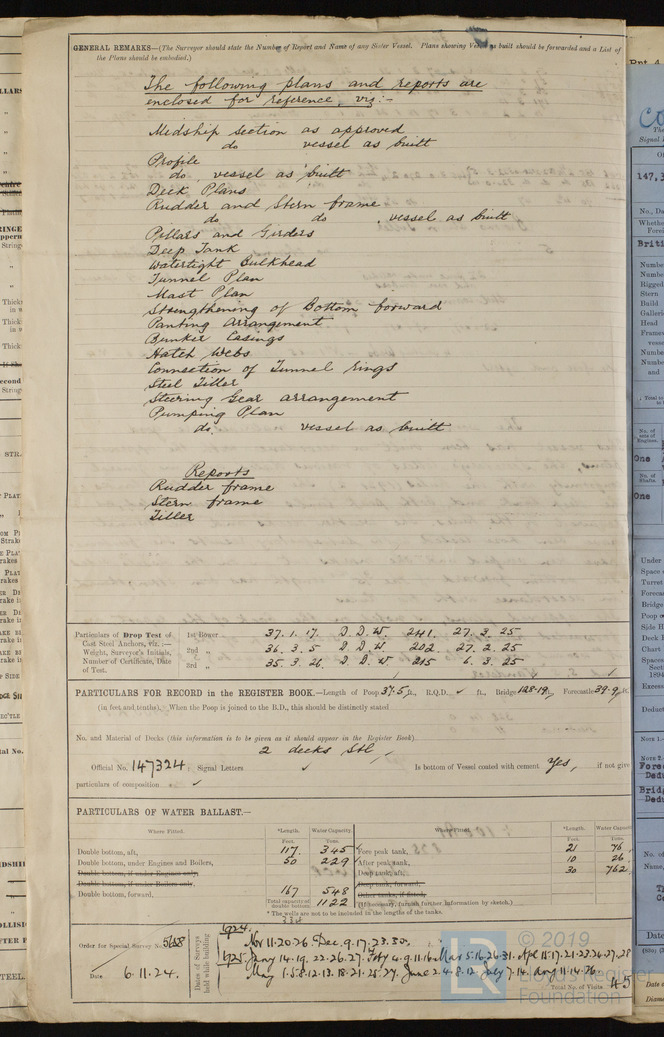 GENERAL REMARKS—(The Surveyor should state the Number of Report and Name of any Sister Vessel. Plans showing Vessel as built should be forwarded and a List of
the Plans should be embodied.)
The following plans and reports are
enclosed for reference, viz:-
Midship Section as approved
do vessel as built
Profile
do. vessel as built
Deck Plans
Rudder and Stern frame
do do , vessel as built
Pillars and Girders
Deep Tank
Watertight Bulkhead
Tunnel Plan
Mast Plan
Strengthening of Bottom forward
Panting Arrangement
Bunker Casings
Hatch Webs
Connection of Tunnel rings
Steel Tiller
Steering Gear arrangement
Pumping Plan
do. vessel as built
Reports
Rudder frame
Stern frame
Tiller
Particulars of Drop Test of
Cast Steel Anchors, viz.:—
Weight, Surveyor's Initials,
Number of Certificate, Date
of Test.
1st Bower 37. 1. 17. D. D. W. 241. 27. 3. 25
2nd „ 36. 3. 5 D. D. W. 202. 27. 2. 25
3rd „ 35. 3. 26. D. D. W. 215 6. 3. 25
PARTICULARS FOR RECORD in the REGISTER BOOK.—Length of Poop 37.5 ft., R.Q.D. ✓ ft., Bridge 128.19 ft., Forecastle 39.9 ft.
(in feet and tenths). When the Poop is joined to the B.D., this should be distinctly stated
No. and Material of Decks (this information is to be given as it should appear in the Register Book)
2 decks Stl
Official No. 147324 ; Signal Letters ✓ Is bottom of Vessel coated with cement Yes, if not give
particulars of composition ✓
PARTICULARS OF WATER BALLAST.—
Where Fitted. *Length. Water Capacity. Where Fitted. *Length. Water Capacity
Feet. Tons. Feet. Tons.
Double bottom, aft, 117. 345 Fore peak tank, 21 76
Double bottom, under Engines and Boilers, 50 229 After peak tank, 10 26
Double bottom, if under Engines only, Deep tank, aft, 30 762
Double bottom, if under Boilers only, Deep tank, forward,
Double bottom, forward, 167 548 Other tanks, if fitted,
Total capacity of double bottom 1122 (If necessary, furnish further information by sketch.)
* The wells are not to be included in the lengths of the tanks.
334
Order for Special Survey No. 5658
Date 6.11.24.
Dates of Surveys held while building
1924.
Nov 11.20.26. Dec. 9.17.23.30.
1925. Jany 14.19.22.26.27. Feby 4.9.11.16. Mar 5.16.26.31. Apl 15.17.21.23.26.27.28
May 1.5.8.12.13.18.21.25.27. June 2.4.8.12. July 7.14. Aug 11.14.26.
Total No. of Visits 45
© 2019
LR
Lloyd's Register
Foundation